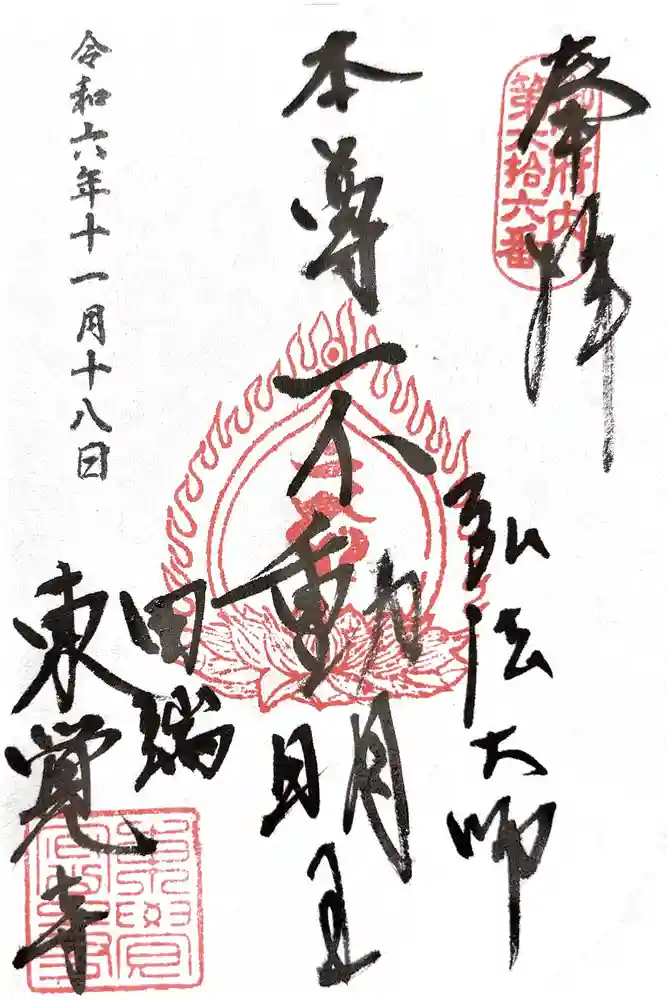 奉拝
御府内
第六拾六番
弘法大師
本尊不動明王
令和六年十一月十八日
田端
東覺寺